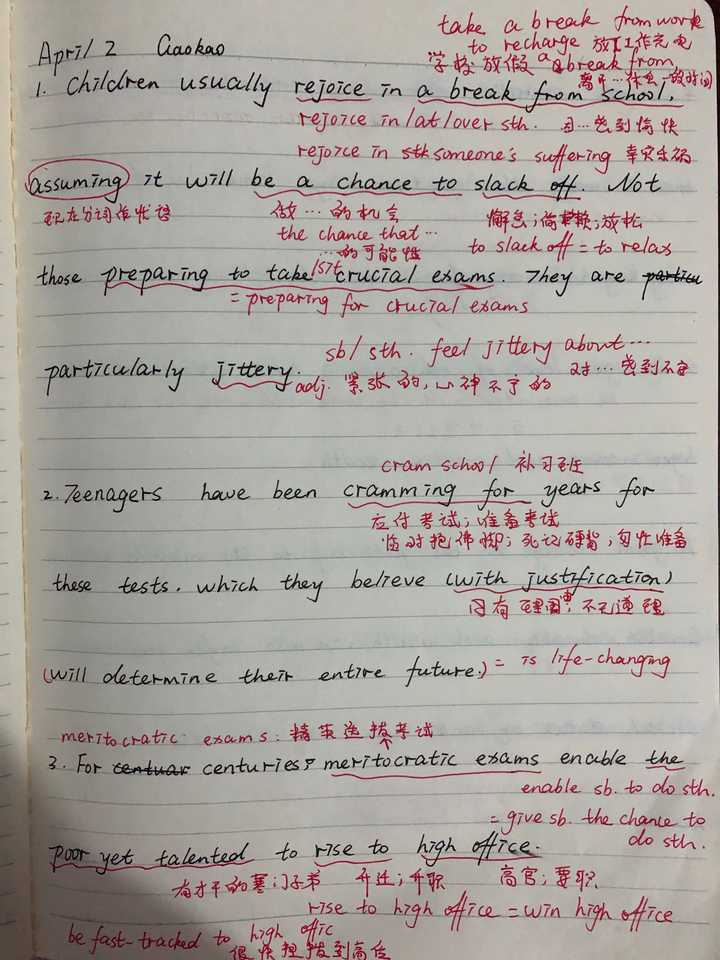 take a break from work
April 2 Gaokao to recharge 放下工作充电
学校放假 a break from
离开…休息一段时间
1. Children usually rejoice in a break from school,
rejoice in/at/over sth. 因…感到愉快
rejoice in sth someone's suffering 幸灾乐祸
assuming it will be a chance to slack off. Not
现在分词作状语 做…的机会 懈怠;偷懒;放松
the chance that… to slack off = to relax
…的可能性
those preparing to take/sit crucial exams. They are particu
= preparing for crucial exams
sb/sth. feel jittery about…
particularly jittery. 对…感到不安
adj. 紧张的,心神不宁的
cram school 补习班
2. Teenagers have been cramming for years for
应付考试;准备考试
临时抱佛脚;死记硬背;匆忙准备
these tests. which they believe (with justification)
有理由;不无道理
(will determine their entire future.) = is life-changing
meritocratic exams: 精英选拔考试
3. For centuar centuries, meritocratic exams enable the
enable sb. to do sth.
= give sb. the chance to
do sth.
poor yet talented to rise to high office.
有才干的寒门子弟 升迁;升职 高官;要职
rise to high office = win high office
be fast-tracked to high offic
很快提拔到高位